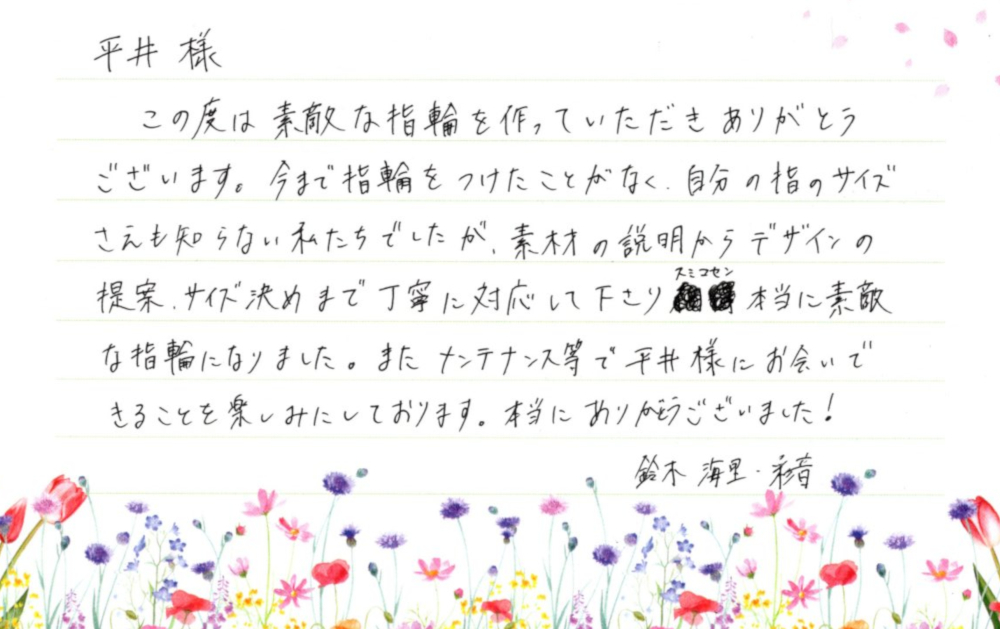 平井 様
この度は素敵な指輪を作っていただきありがとう
ございます。今まで指輪をつけたことがなく、自分の指のサイズ
さえも知らない私たちでしたが、素材の説明からデザインの
スミコセン
提案、サイズ決めまで丁寧に対応して下さり 本当に素敵
な指輪になりました。また メンテナンス等で平井様にお会いで
きることを楽しみにしております。本当にありがとうございました!
鈴木 海里・彩音